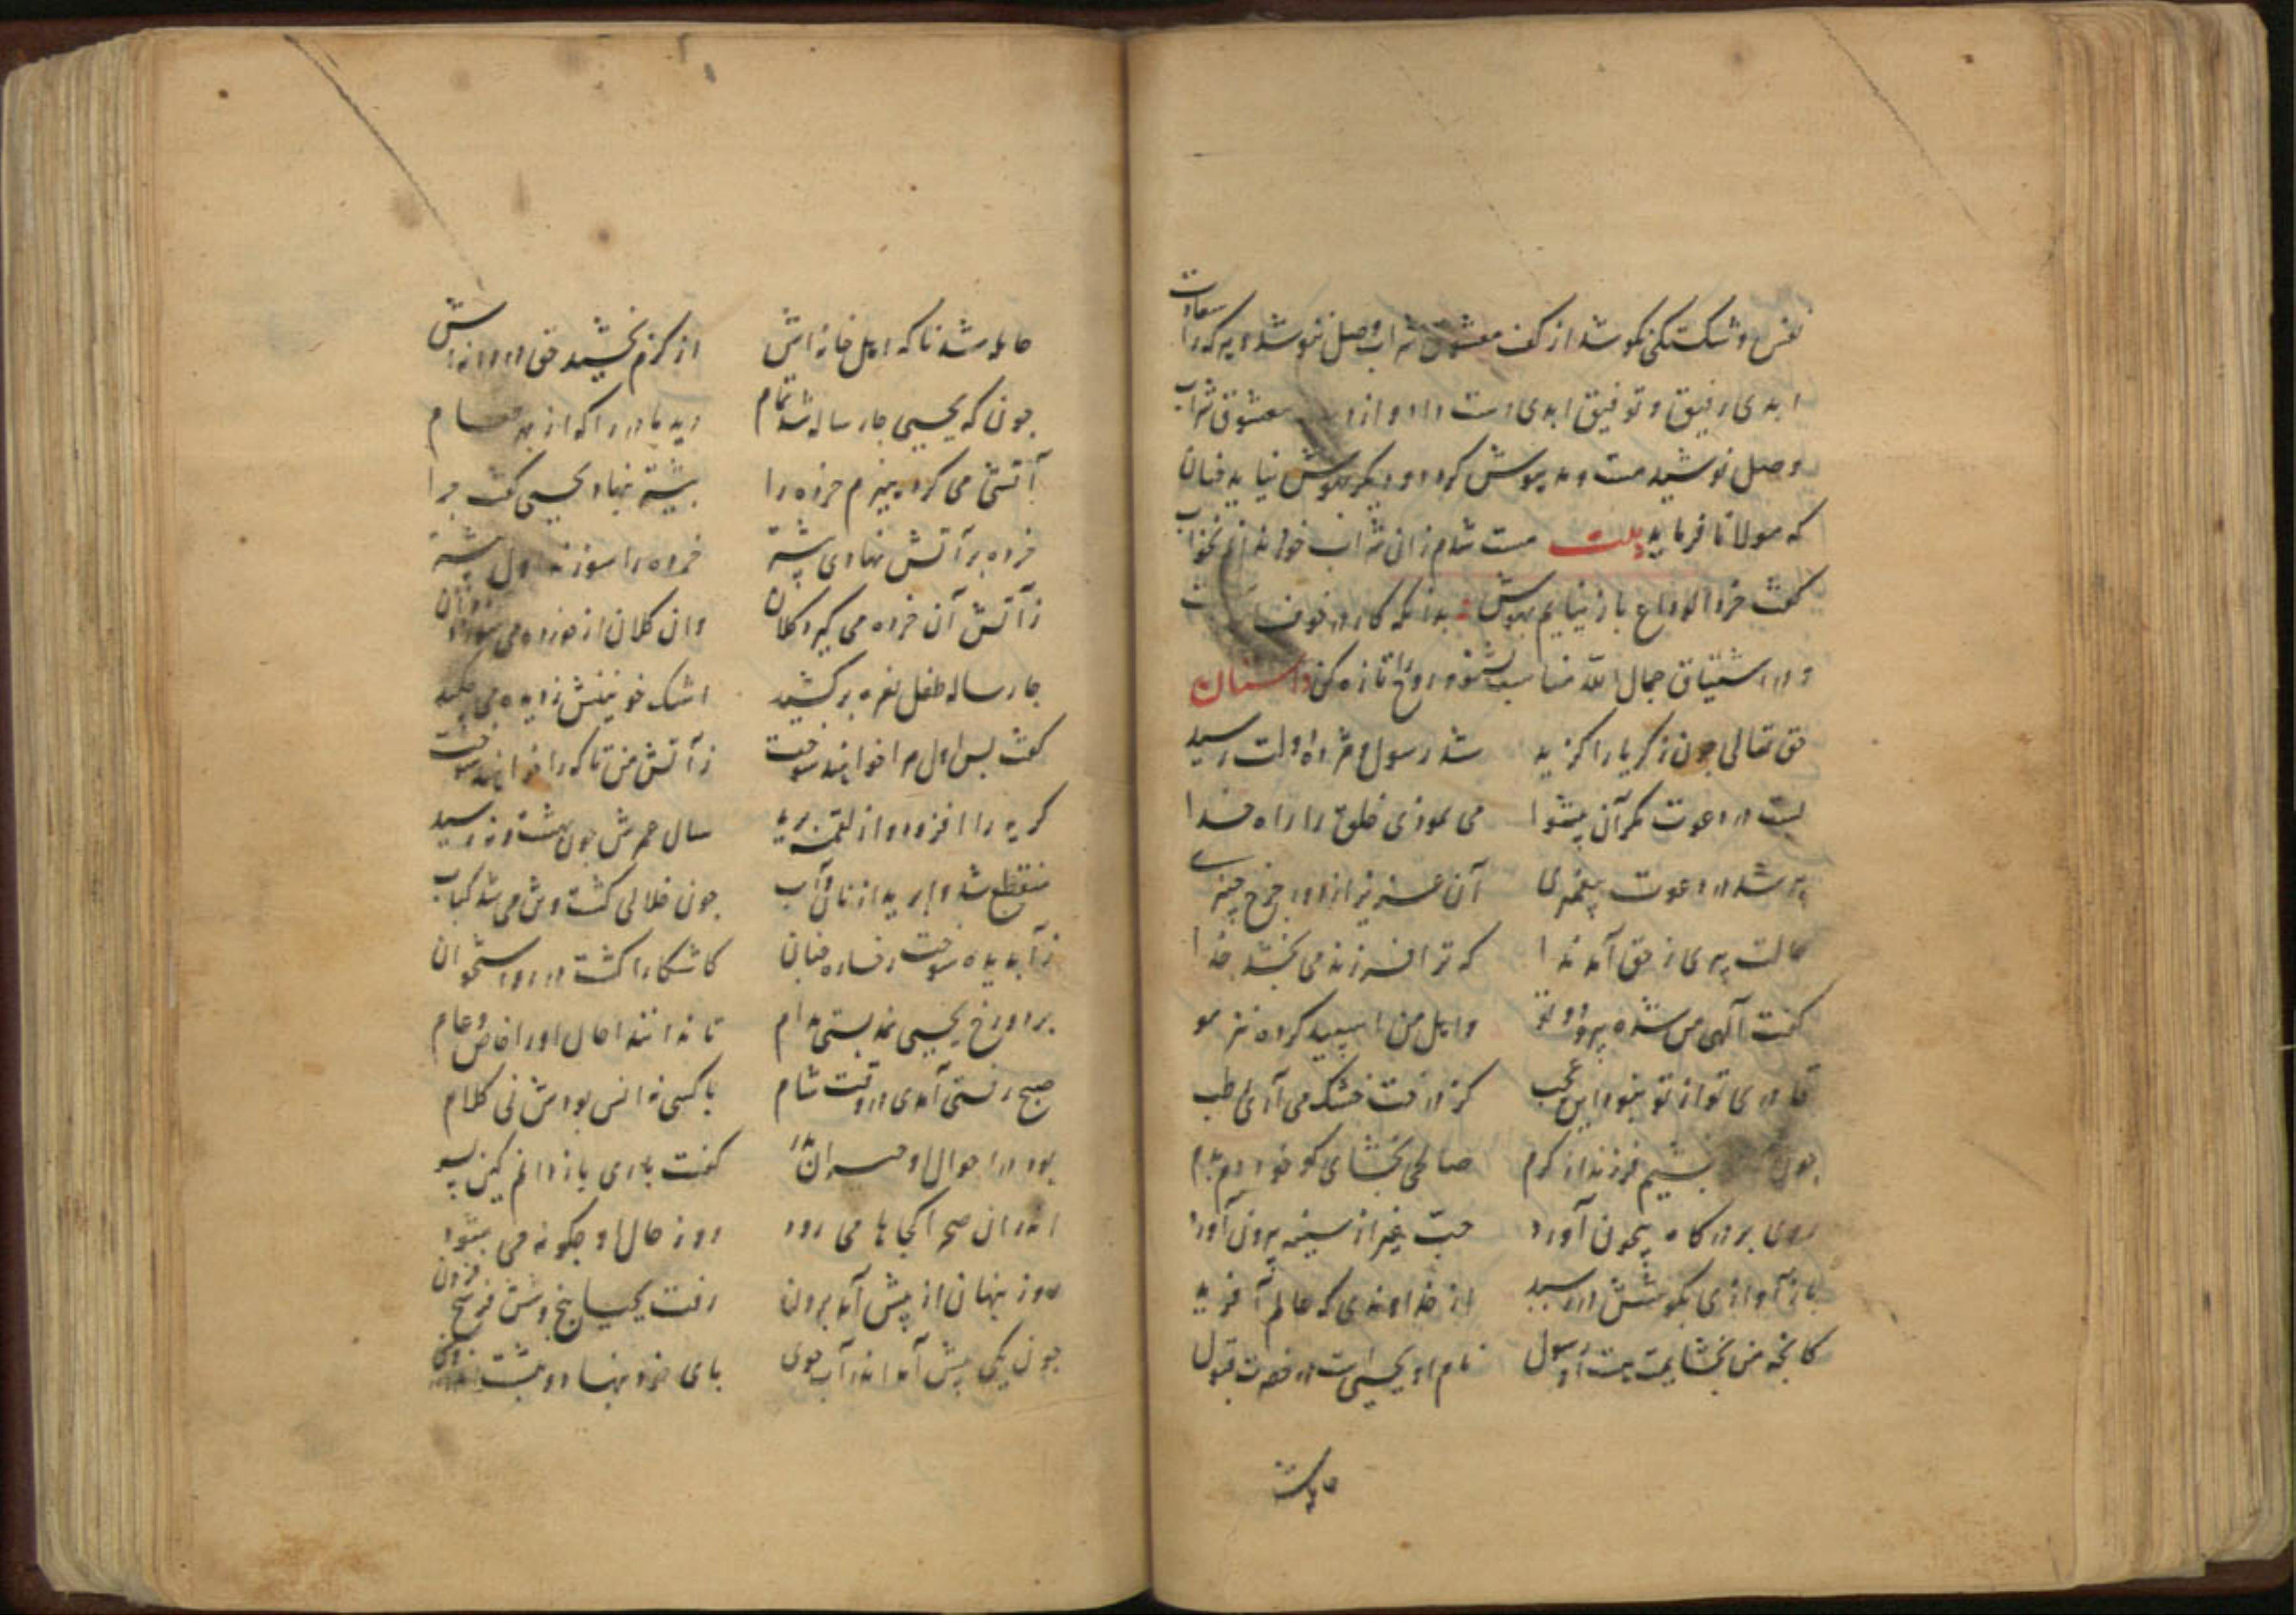 نفس و شکستگی نکوشد از کف معشوق شراب وصل ننوشد و هر که را سعادت
ابدی رفیق و توفیق ابدی دست داد و از معشوق شراب
وصل نوشید مست و مدهوش گردد و دیگر بهوش نیاید چنان
که مولانا فرماید بیت مست شدم زان شراب
گفت خرد الوداع باز نیایم بهوش بدانکه کار در خوف
و در اشتیاق جمال الله مناسب بشنو و روح را تازه کن داستان
حق تعالی چون زکریا را گزید شد رسول و مژده دولت رسید
بست در دعوت کمر آن پیشوا می نمودی خلق را راه خدا
پیر شد در دعوت پیغمبری آن عزیز از دور چرخ چنبری
حالت پیری ز حق آمد ندا که ترا فرزند می بخشد خدا
گفت الهی من شده پیر و دوتو و اهل من اسپید کرده نیز مو
قادری تو از تو نبود این عجب کز درخت خشک می آری رطب
چون بخشیم فرزند از کرم صالحی بخشای کو خود دم بدم
روی بر درگاه بیچون آورد حب غیر از سینه بیرون آورد
باز آوازی بگوشش در رسید از خداوندی که عالم آفرید
کانچه من بخشایمت هست او رسول نام او یحیی است در حضرت قبول
حامله شد
حامله شد ناگه اهل خانه اش از کرم بخشید حق دردانه اش
چون که یحیی چار ساله شد تمام دید مادر را که از بهر طعام
آتشی می کرد هیزم خرده را پشته نهاد یحیی گفت چرا
خرده بر آتش نهادی پشته خرده را سوزند اول پشته
ز آتش آن خرده می گیرد کلان وان کلان از خرده می سوزد
چار ساله طفل نعره بر کشید اشک خونینش ز دیده می چکید
گفت بس اول مرا خواهند سوخت ز آتش من تا که را خواهند سوخت
گریه را افزود و از لقمه برید سال عمرش چون بهشت و نه رسید
منقطع شد و ببرید از نان و آب چون خلالی گشت و تن می شد کباب
ز آب دیده سوخت رخساره چنان کاشکارا گشت در رو استخوان
بر دو رخ یحیی نمد بستی مدام تا ندانند حال او را خاص و عام
صبح رفتی آمدی در وقت شام با کسی نه انس بودش نی کلام
بود در احوال او حیران پدر گفت باری باز دانم کین پسر
اندران صحرا کجاها می رود روز حال او چگونه می شود
روز پنهان از پیش آمد برون رفت یحیی پنج و شش فرسخ فزون
چون یکی پیش آمد اندر آب جوی پای خود بنهاد و بنشست